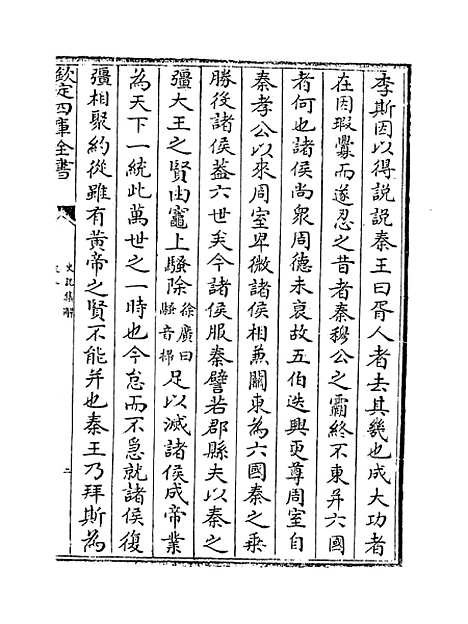 李斯因以得説説秦王曰胥人者去其幾也成大功者
在因瑕釁而遂忍之昔者秦穆公之霸終不東并六國
者何也諸侯尚衆周德未衰故五伯迭興更尊周室自
秦孝公以來周室卑微諸侯相兼關東為六國秦之乗
勝役諸侯蓋六世矣今諸侯服秦譬若郡縣夫以秦之
彊大王之賢由竈上騷除徐廣曰騷音埽足以滅諸侯成帝業
為天下一統此萬世之一時也今怠而不急就諸侯復
彊相聚約從雖有黄帝之賢不能并也秦王乃拜斯為
欽定四庫全書
史記集解
二